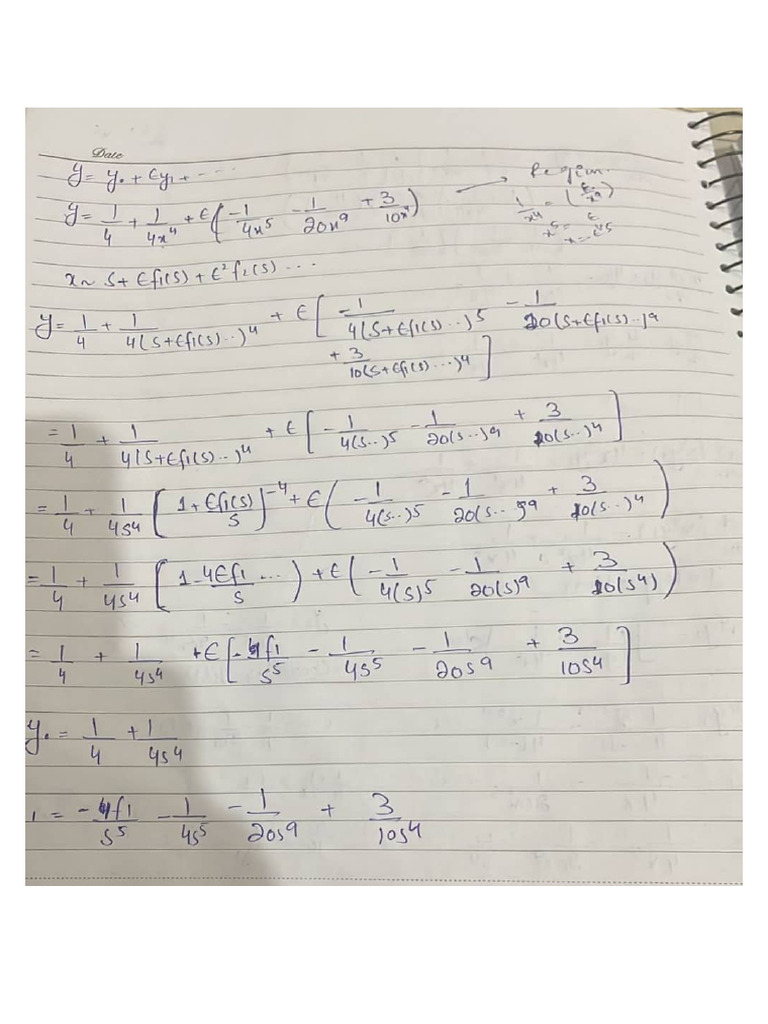 Date
y = y₀ + ϵy₁ + - - -
y = 1/4 + 1/(4x⁴) + ϵ(-1/(4x⁵) - 1/(20x⁹) + 3/(10x⁴)) → Region.
1/x⁴ = (ϵ/x⁹)
x⁵ = ϵ
x = ϵ^(1/5)
x ~ s + ϵf₁(s) + ϵ²f₂(s) ...
y = 1/4 + 1/(4(s+ϵf₁(s)..)⁴) + ϵ[-1/(4(s+ϵf₁(s)...)⁵) - 1/(20(s+ϵf₁(s)..)⁹)
+ 3/(10(s+ϵf₁(s)...)⁴)]
= 1/4 + 1/(4(s+ϵf₁(s)..)⁴) + ϵ[-1/(4(s..)⁵) - 1/(20(s..)⁹) + 3/(10(s..)⁴)]
= 1/4 + 1/(4s⁴) [1 + ϵf₁(s)/s]⁻⁴ + ϵ(-1/(4(s..)⁵) - 1/(20(s..)⁹) + 3/(10(s..)⁴))
= 1/4 + 1/(4s⁴) [1 - 4ϵf₁/s ...) + ϵ(-1/(4(s)⁵) - 1/(20(s)⁹) + 3/(10(s⁴))
= 1/4 + 1/(4s⁴) + ϵ[-f₁/s⁵ - 1/(4s⁵) - 1/(20s⁹) + 3/(10s⁴)]
y₀ = 1/4 + 1/(4s⁴)
= -f₁/s⁵ - 1/(4s⁵) - 1/(20s⁹) + 3/(10s⁴)